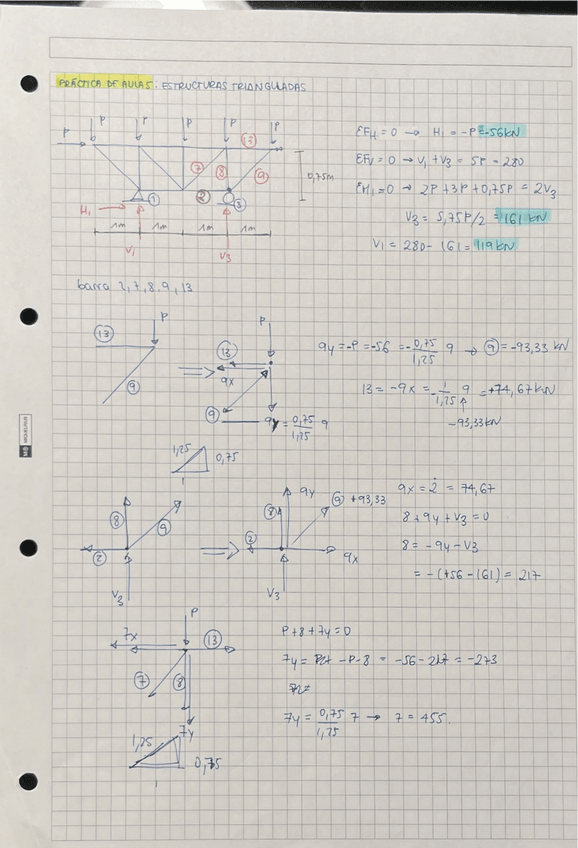 PRÁCTICA DE AULAS: ESTRUCTURAS TRIANGULADAS
P P P P P
P
13
7 8 9
0,75m
1 2 3
H₁
1m 1m 1m 1m
V₁ V₃
ΣFH = 0 → H₁ = -P = -56kN
ΣFV = 0 → V₁ + V₃ = 5P = 280
ΣM₁ = 0 → 2P + 3P + 0,75P = 2V₃
V₃ = 5,75P/2 = 161 kN
V₁ = 280 - 161 = 119 kN
barra 2, 7, 8, 9, 13
P
13
9
P
13
9x
9
9y = 0,75/1,25 9
1,25 0,75
1
9y = -P = -56 = 0,75/1,25 9 → 9 = -93,33 kN
13 = -9x = -1/1,25 9 = +74,67kN
-93,33kN
8
9
2
V₃
9y
8 9 +93,33
2
9x
V₃
9x = 2 = 74,67
8 + 9y + V₃ = 0
8 = -9y - V₃
= -(+56 - 161) = 217
P
7x 13
7 8
7y
1,25
0,75
1
P + 8 + 7y = 0
7y = -P - 8 = -56 - 217 = -273
7y = 0,75/1,25 7 → 7 = 455.
MIQUELRIUS